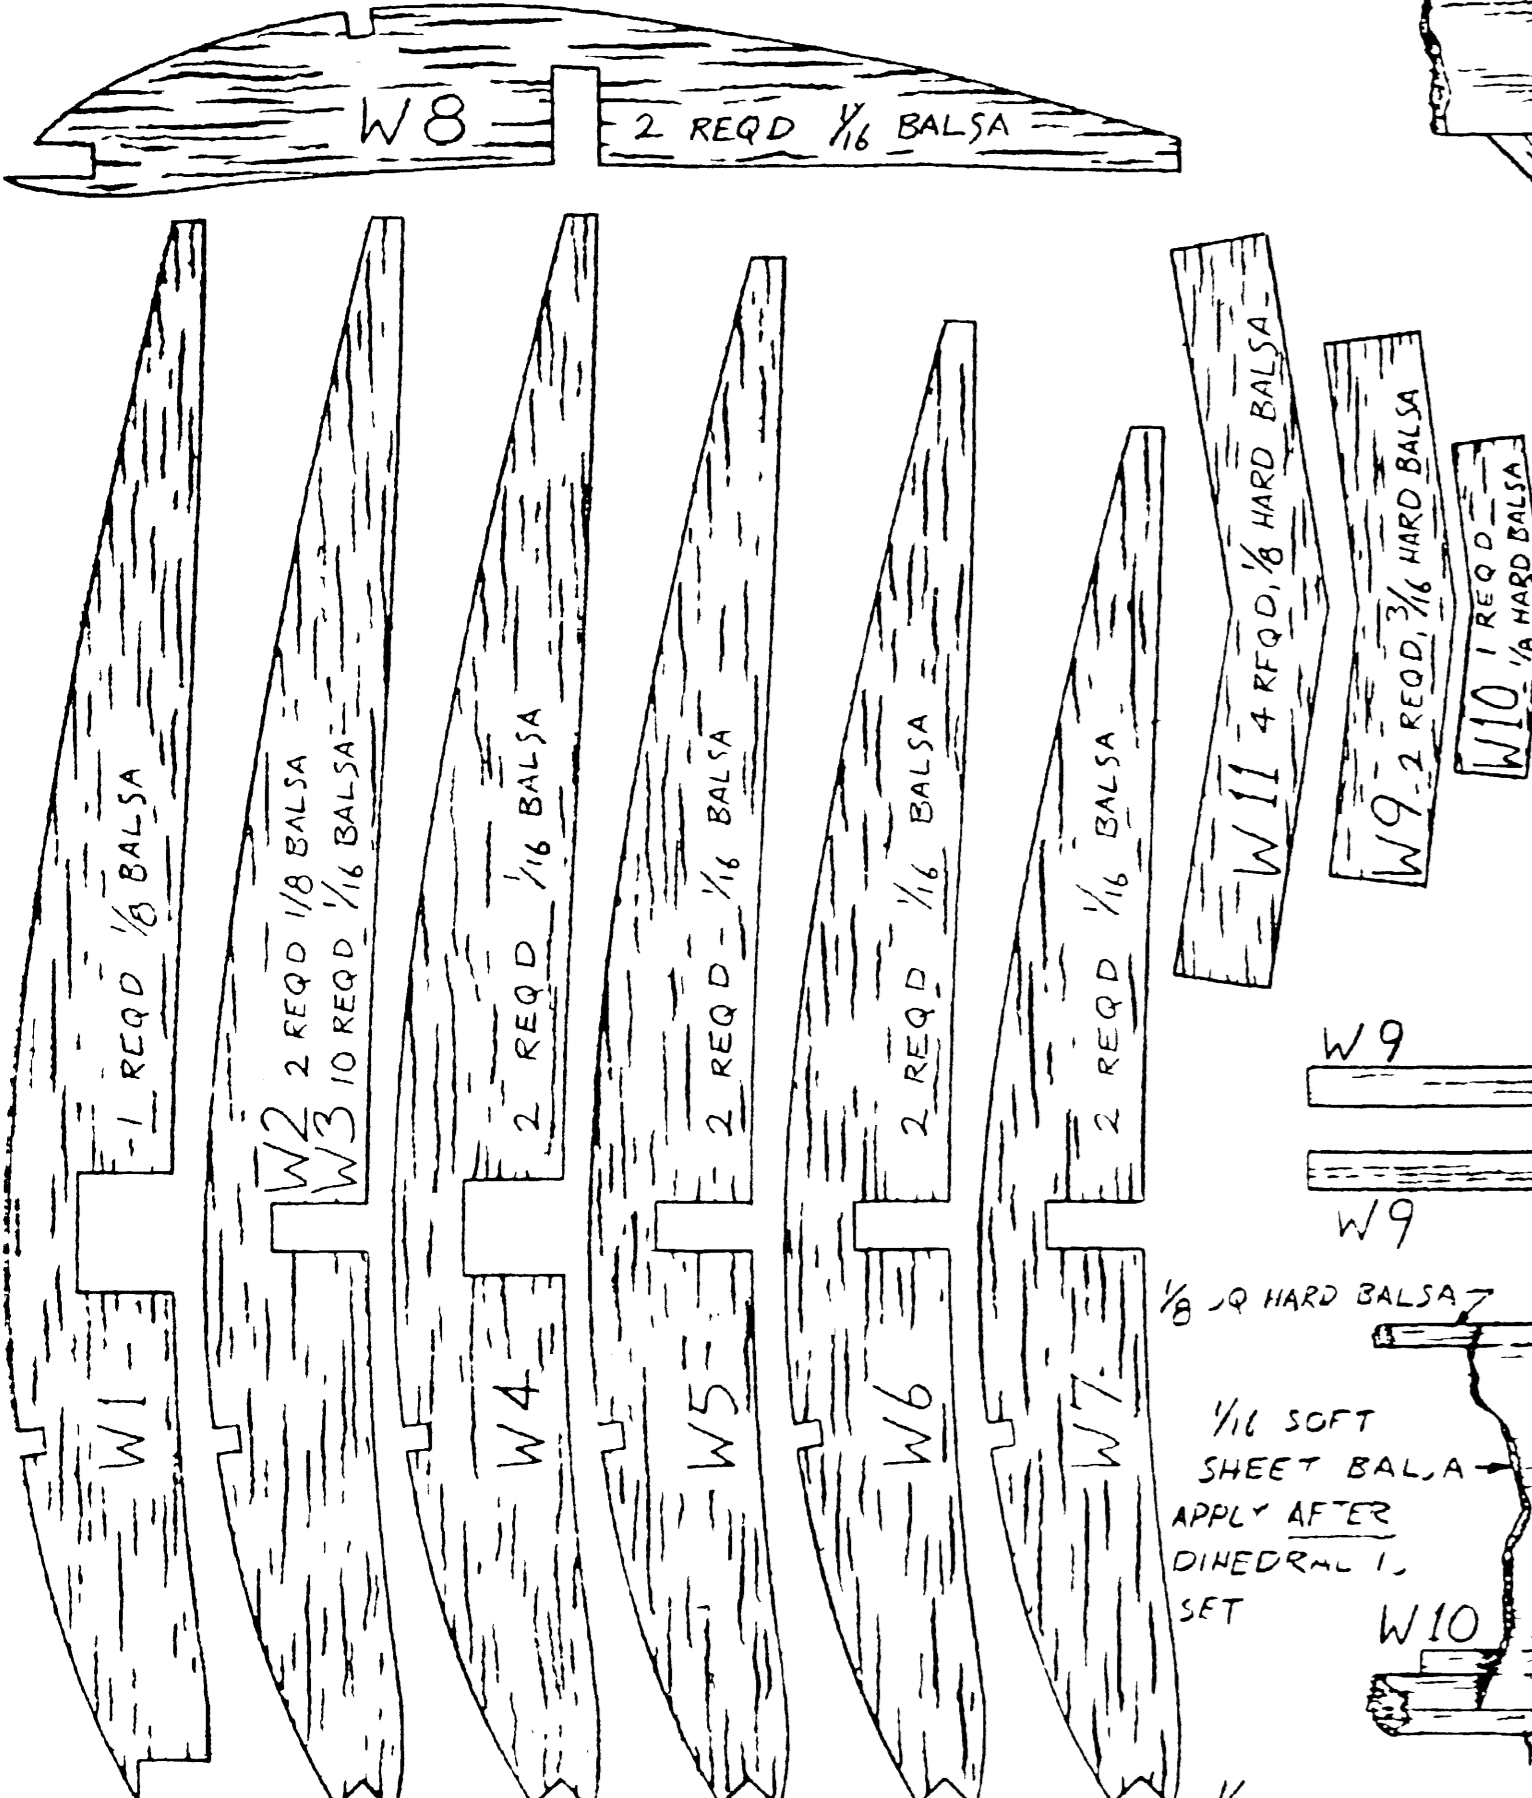 W8
2 REQD 1/16 BALSA
W1
1 REQD 1/8 BALSA
W2 2 REQD 1/8 BALSA
W3 10 REQD 1/16 BALSA
W4
2 REQD 1/16 BALSA
W5
2 REQD 1/16 BALSA
W6
2 REQD 1/16 BALSA
W7
2 REQD 1/16 BALSA
W11 4 REQD, 1/8 HARD BALSA
W9 2 REQD, 3/16 HARD BALSA
W10 1 REQD
HARD BALSA
W9
W9
1/8 HARD BALSA
1/16 SOFT
SHEET BALSA
APPLY AFTER
DIHEDRAL
SET
W10